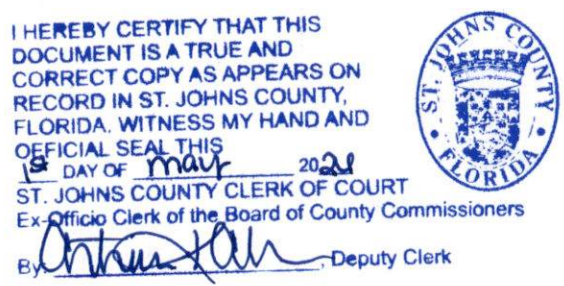 I HEREBY CERTIFY THAT THIS
DOCUMENT IS A TRUE AND
CORRECT COPY AS APPEARS ON
RECORD IN ST. JOHNS COUNTY,
FLORIDA. WITNESS MY HAND AND
OFFICIAL SEAL THIS
1st DAY OF may 20
ST. JOHNS COUNTY CLERK OF COURT
Ex-Officio Clerk of the Board of County Commissioners
By: , Deputy Clerk
ST. JOHNS COUNTY
FLORIDA